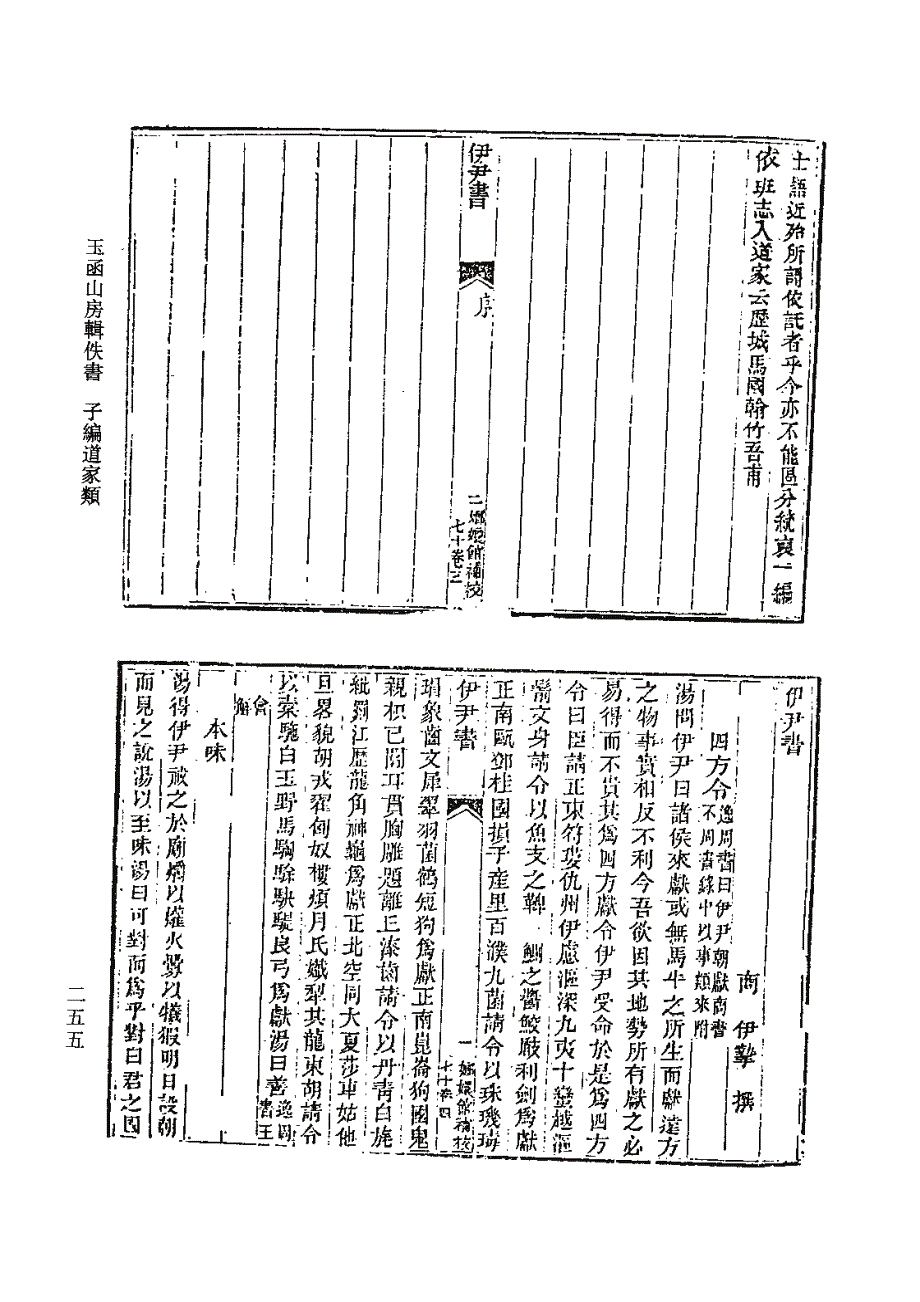 士語近殆所謂依託者乎今亦不能區分統裒一編
依班志入道家云歷城馬國翰竹吾甫
伊尹書
序
二 嫏嬛館補校
七十卷三
玉函山房輯佚書 子編道家類
伊尹書
商 伊摯 撰
四方令 逸周書曰伊尹朝獻商書
不周書錄中以事類來附
湯問伊尹曰諸侯來獻或無馬牛之所生而獻遠方
之物事實相反不利今吾欲因其地勢所有獻之必
易得而不貴其爲四方獻令伊尹受命於是爲四方
令曰臣請正東符婁仇州伊慮漚深九夷十蠻越漚
鬋文身請令以魚支之鞞 鰂之醬鮫瞂利劍爲獻
正南甌鄧桂國損子產里百濮九菌請令以珠璣瑇
伊尹書
一 嫏嬛館補校
七十卷四
瑁象齒文犀翠羽菌鶴短狗爲獻正南崑崙狗國鬼
親枳已闟耳貫胸雕題離丘漆齒請令以丹青白旄
紕罽江歷龍角神龜爲獻正北空同大夏莎車姑他
旦畧貌胡戎翟匈奴樓煩月氏孅犁其龍東胡請令
以橐駞白玉野馬騊駼駃騠良弓爲獻湯曰善 逸周書王
會解
本味
湯得伊尹祓之於廟爝以爟火釁以犧猳明日設朝
而見之說湯以至味湯曰可對而爲乎對曰君之國
二五五